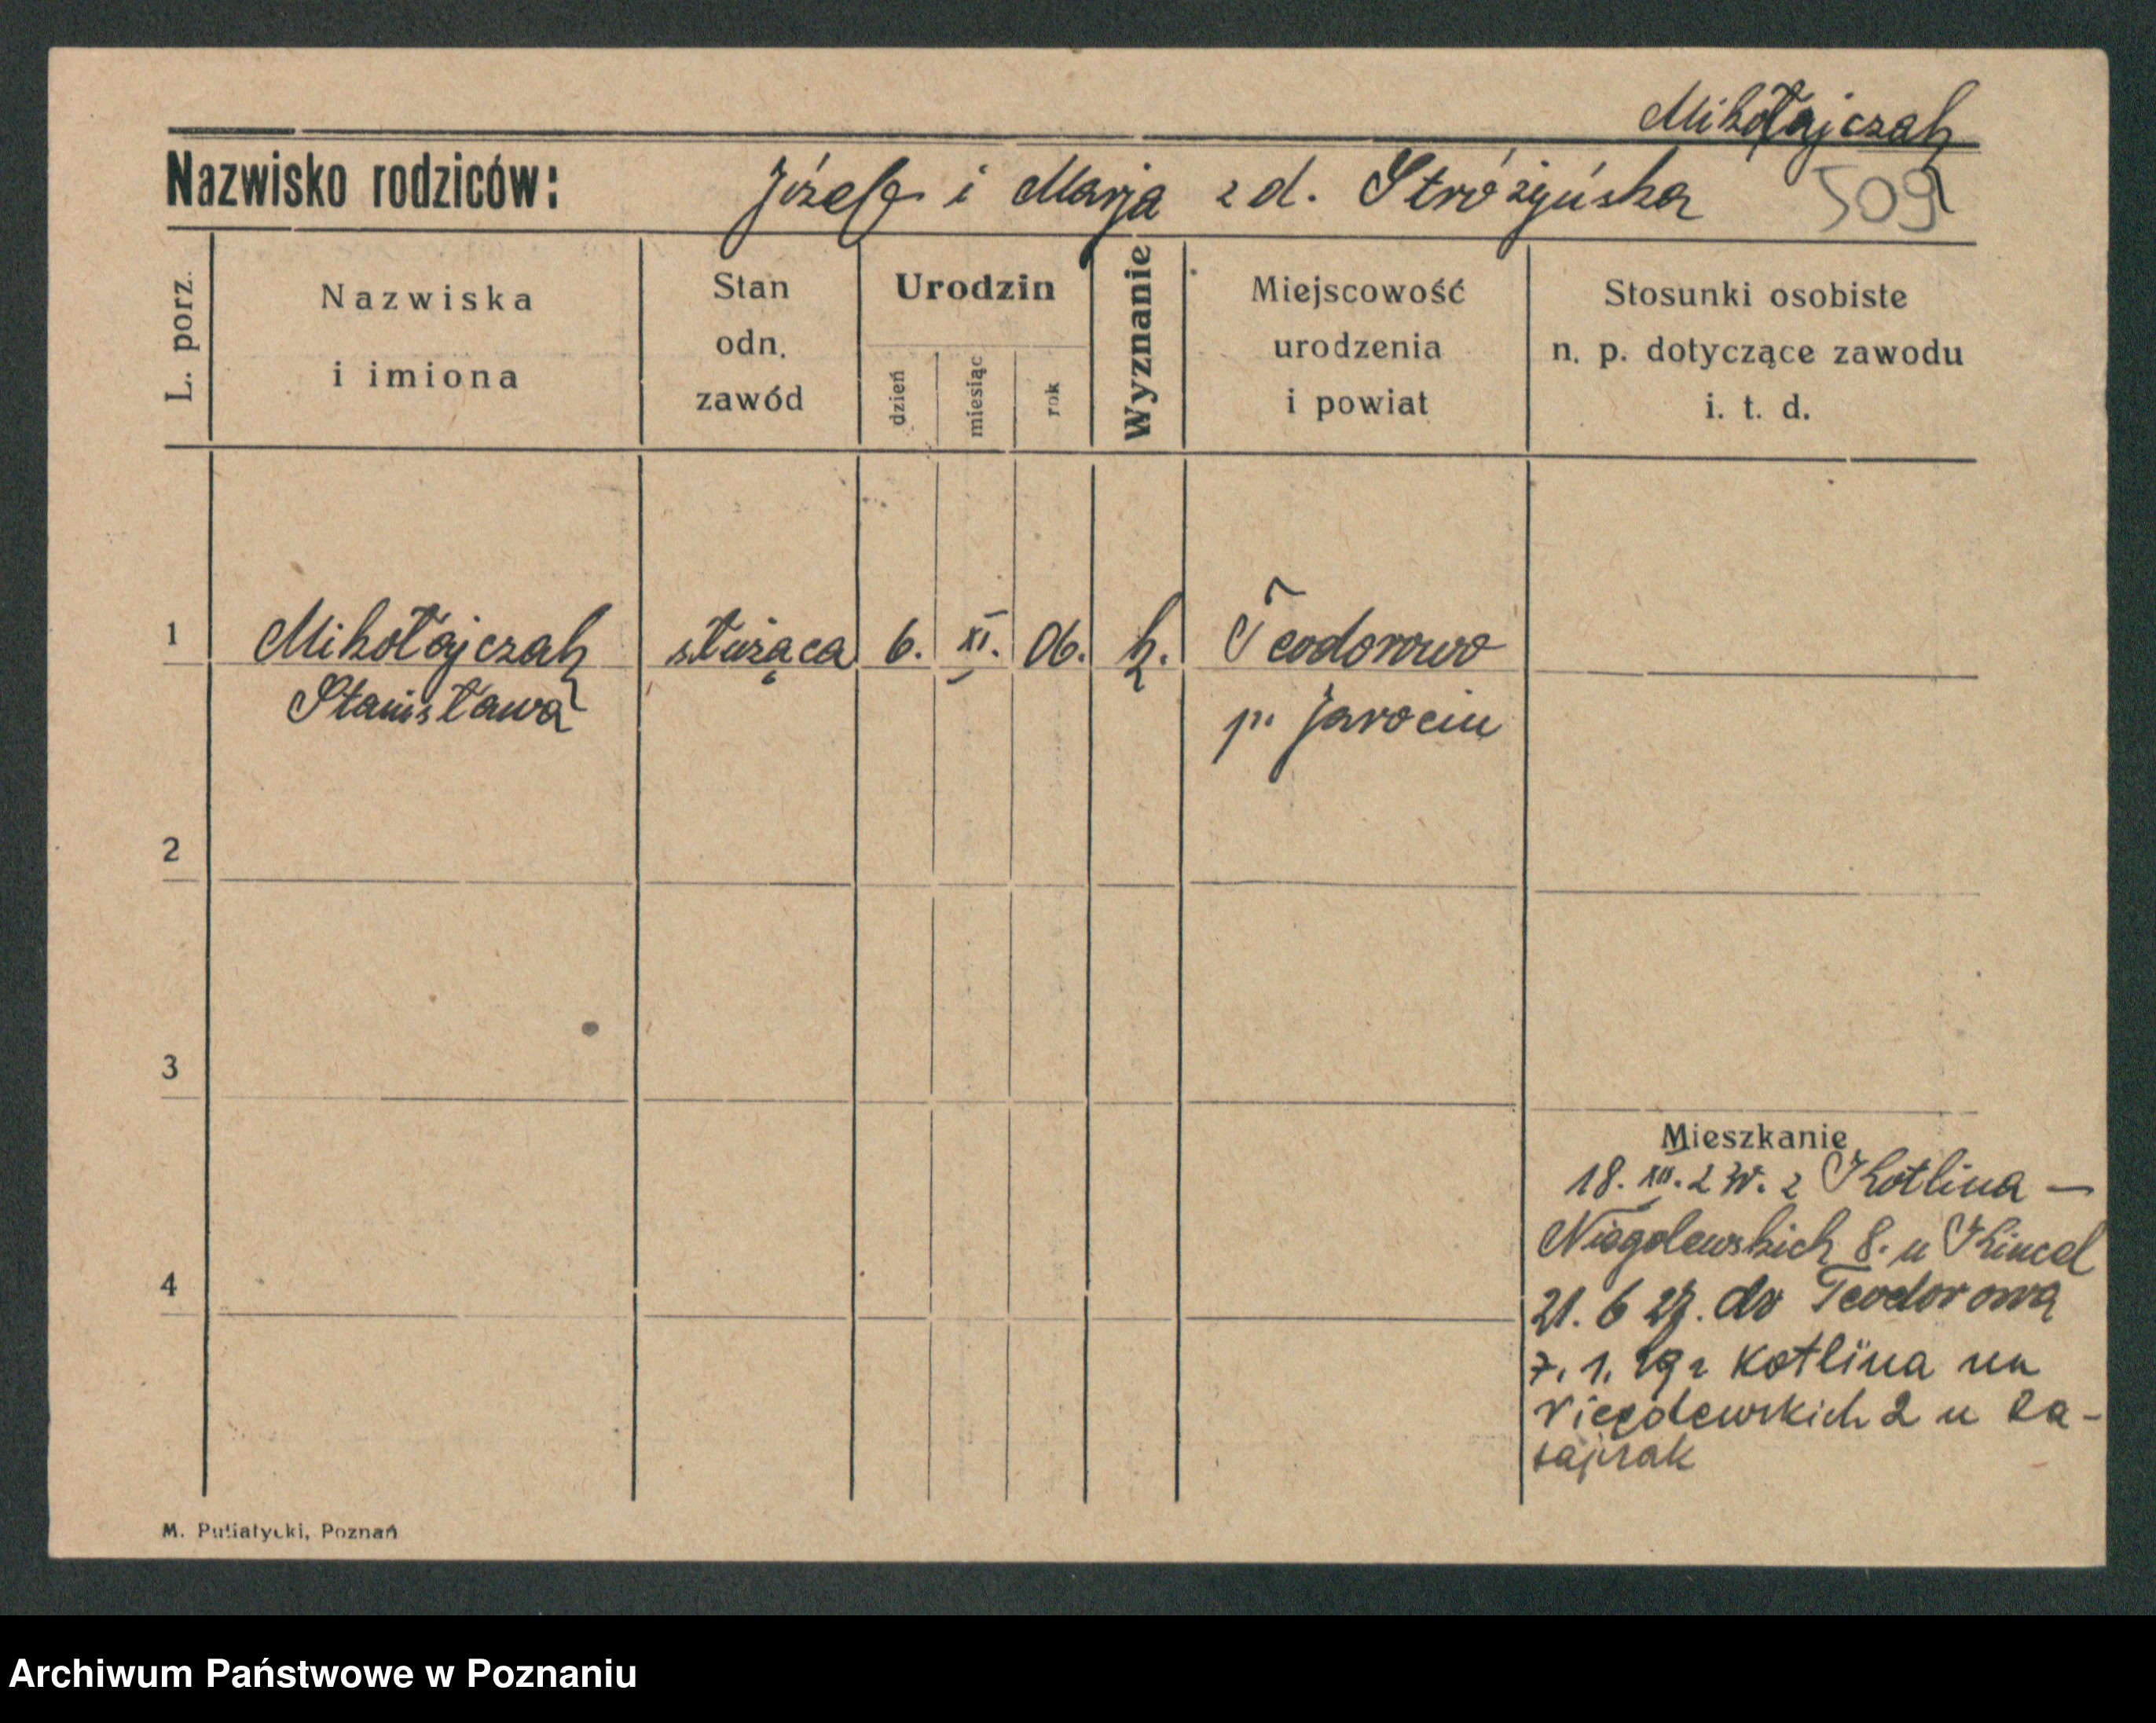 Mikołajczak
Nazwisko rodziców: Józef i Marja z d. Stróżyńska 509
L. porz.
Nazwiska i imiona
Stan odn. zawód
Urodzin
dzień
miesiąc
rok
Wyznanie
Miejscowość urodzenia i powiat
Stosunki osobiste n. p. dotyczące zawodu i. t. d.
1 Mikołajczak służąca 6. XI. 06. k. Teodorowo
Stanisława p. Jarocin
2
3
Mieszkanie
18. XII. z Kotlina —
Niegolewskich 8. u
4
21. 6 27. do Teodorowa
7. 1. 29 z Kotlina na
Niegolewskich 2 u Ra-
tajczak
M. Putiatycki, Poznań
Archiwum Państwowe w Poznaniu